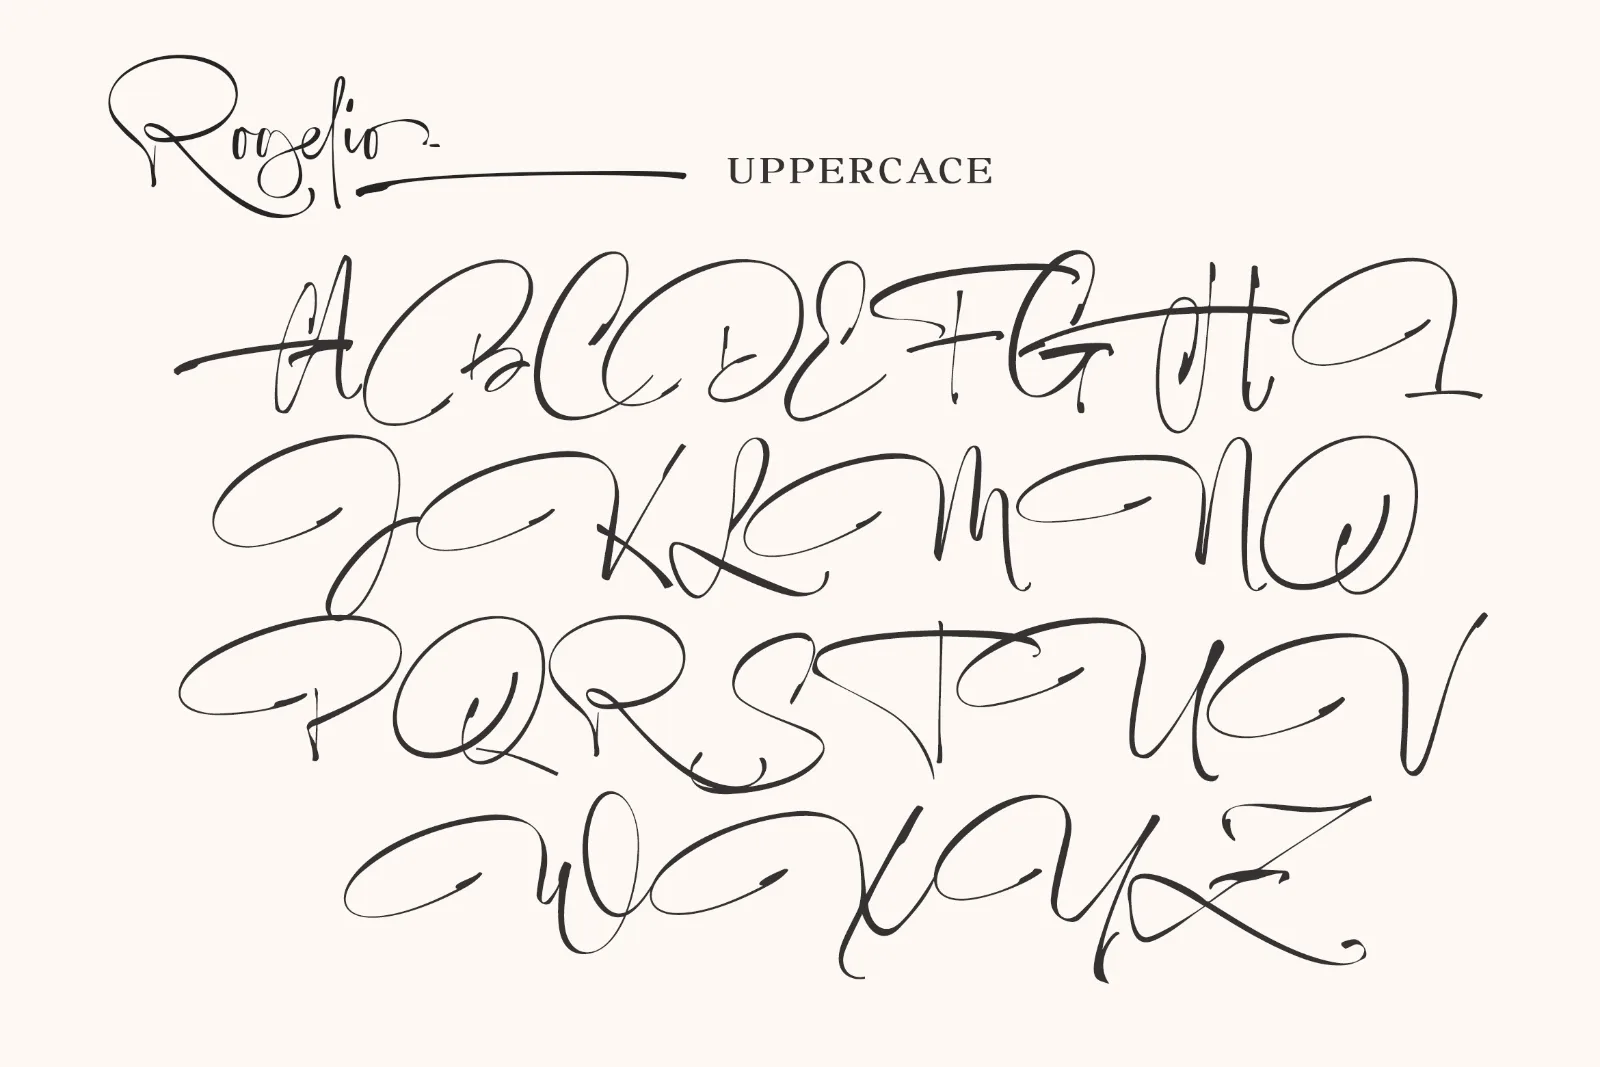 Rogelio
UPPERCACE
A B C D E F G H I
J K L M N O
P Q R S T U V
W X Y Z